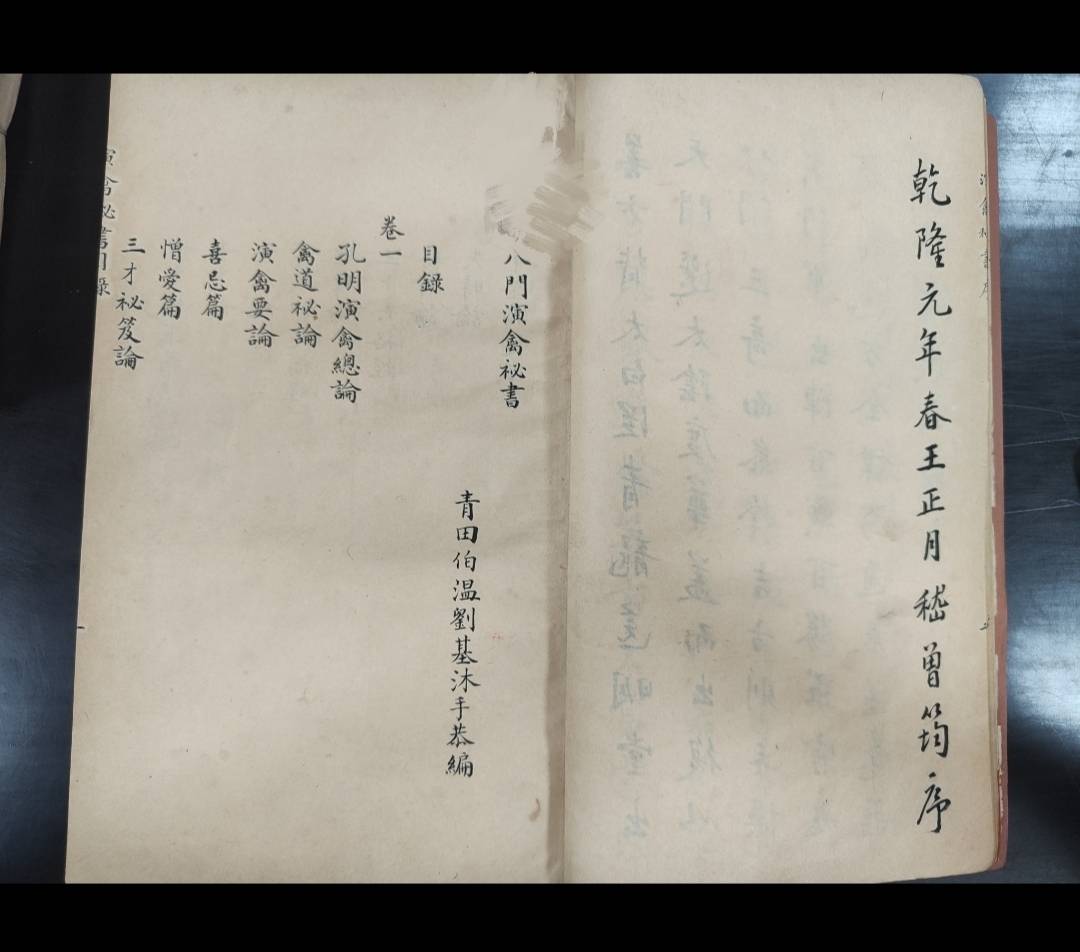 乾隆元年春王正月嵇曾筠序
八門演禽祕書
青田伯温劉基沐手恭編
目錄
卷一
孔明演禽總論
禽道祕論
演禽要論
喜忌篇
憎愛篇
三才祕笈論
演禽祕書目錄